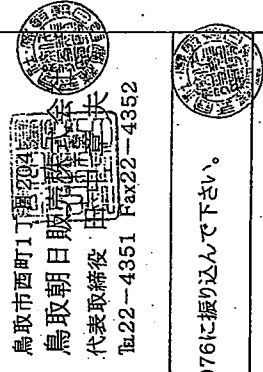 鳥取市西町1丁目204
鳥取朝日販売株式会社
代表取締役
℡22-4351 Fax22-4352
076に振り込んで下さい。